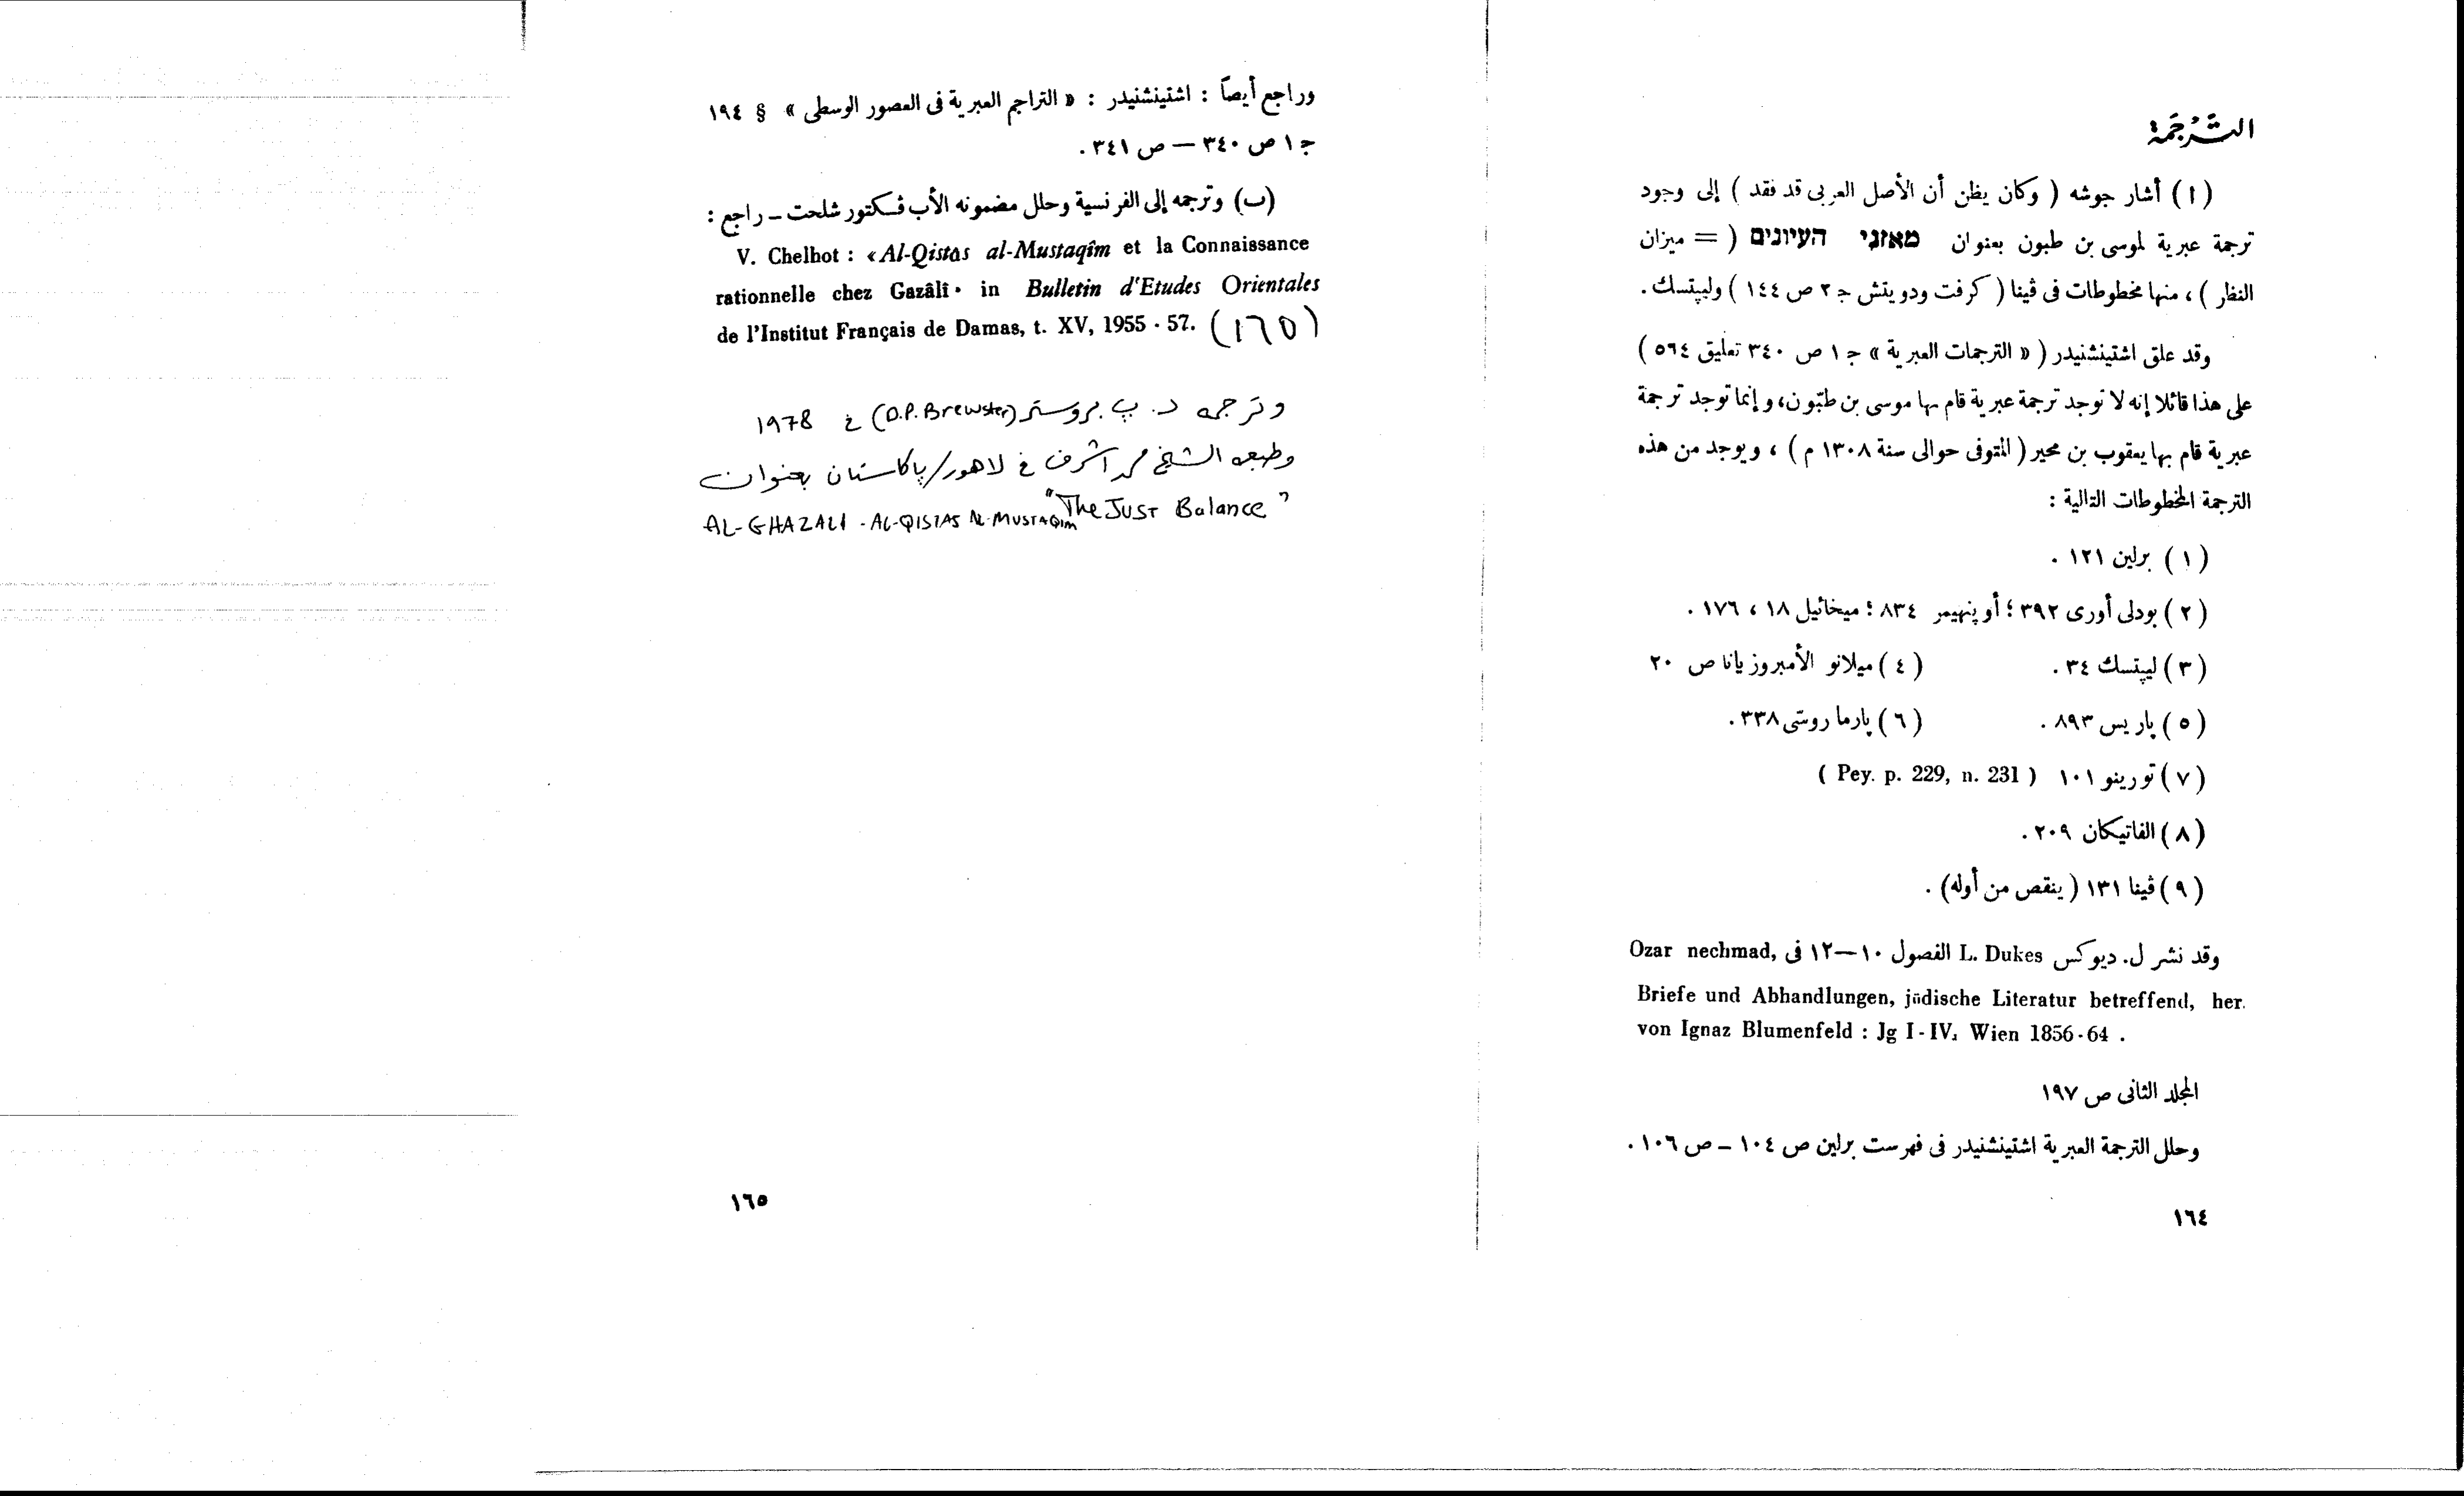 التَّرْجَمَة
(ا) أشار جوشه ( وكان يظن أن الأصل العربى قد فقد ) إلى وجود
ترجمة عبرية لموسى بن طبون بعنوان מאזני העיונים ( = ميزان
النظار ) ، منها مخطوطات فى ڤينا ( كرفت ودويتش ج ٢ ص ١٤٤ ) وليپتسك .
وقد علق اشتينشنيدر ( « الترجمات العبرية » ج ١ ص ٣٤٠ تعليق ٥٦٤ )
على هذا قائلا إنه لا توجد ترجمة عبرية قام بها موسى بن طبّون، و إنما توجد ترجمة
عبرية قام بها يعقوب بن محير ( المتوفى حوالى سنة ١٣٠٨ م ) ، ويوجد من هذه
الترجمة المخطوطات التالية :
( ١ ) برلين ١٢١ .
( ٢ ) بودلى أورى ٣٩٢ ؛ أو پنهيمر ٨٣٤ ؛ ميخائيل ١٨ ، ١٧٦ .
( ٣ ) ليپتسك ٣٤ . ( ٤ ) ميلانو الأمبروزيانا ص ٢٠
( ٥ ) پاريس ٨٩٣ . ( ٦ ) پارما روسّى ٣٣٨ .
( ٧ ) تورينو ١٠١ ( Pey. p. 229, n. 231 )
( ٨ ) الفاتيكان ٢٠٩ .
( ٩ ) ڤينا ١٣١ ( ينقص من أوله) .
وقد نشر ل. ديوكس L. Dukes الفصول ١٠—١٢ فى Ozar nechmad,
Briefe und Abhandlungen, jüdische Literatur betreffend, her.
von Ignaz Blumenfeld : Jg I - IV, Wien 1856 - 64 .
المجلد الثانى ص ١٩٧
وحلل الترجمة العبرية اشتينشنيدر فى فهرست برلين ص ١٠٤ – ص ١٠٦ .
١٦٤
وراجع أيضاً : اشتينشنيدر : « التراجم العبرية فى العصور الوسطى » § ١٩٤
ج ١ ص ٣٤٠ — ص ٣٤١ .
(ب) وترجمه إلى الفرنسية وحلل مضمونه الأب ڤكتور شلحت – راجع :
V. Chelhot : «Al-Qistâs al-Mustaqîm et la Connaissance
rationnelle chez Gazâlî· in Bulletin d'Etudes Orientales
de l'Institut Français de Damas, t. XV, 1955 - 57. (١٦٥)
وترجمه د. پ بروستر (D.P. Brewster) في 1978
وطبعه الشيخ محمد أشرف في لاهور/پاكستان بعنوان
"The JUST Balance"
AL-GHAZALI - AL-QISTAS AL-MUSTAQIM
١٦٥